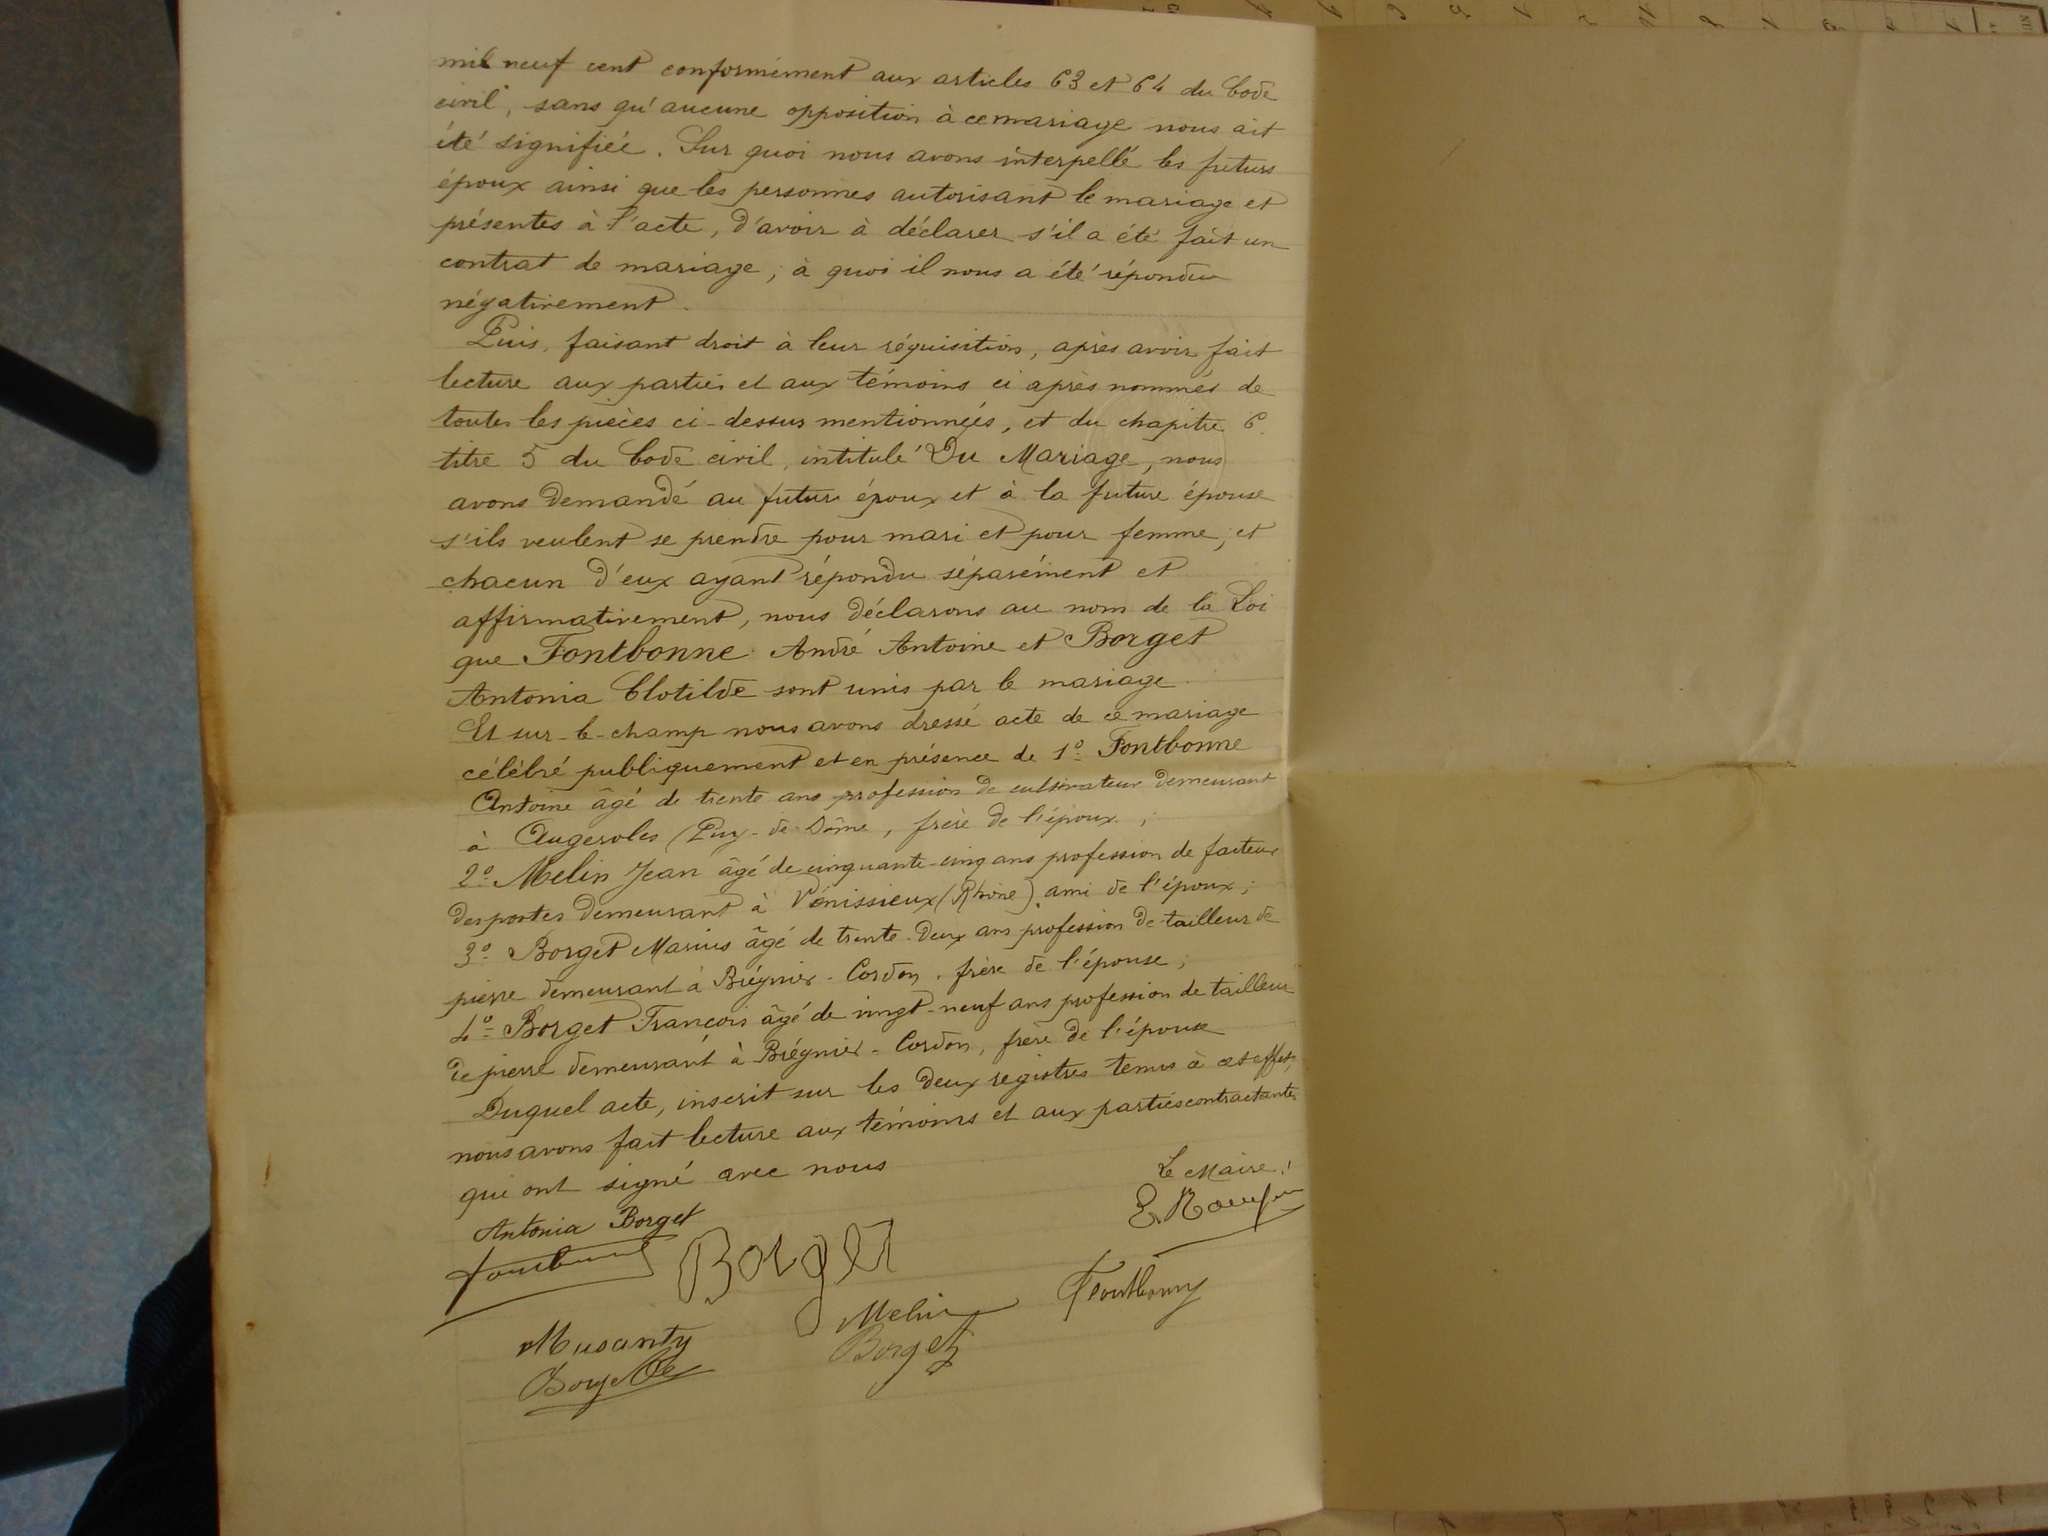 mil neuf cent conformément aux articles 63 et 64 du Code
civil, sans qu'aucune opposition à ce mariage nous ait
été signifiée. Sur quoi nous avons interpellé les futurs
époux ainsi que les personnes autorisant le mariage et
présentes à l'acte, d'avoir à déclarer s'il a été fait un
contrat de mariage; à quoi il nous a été répondu
négativement.
Puis, faisant droit à leur réquisition, après avoir fait
lecture aux parties et aux témoins ci après nommés de
toutes les pièces ci-dessus mentionnées, et du chapitre 6.
titre 5 du Code civil, intitulé Du Mariage, nous
avons demandé au futur époux et à la future épouse
s'ils veulent se prendre pour mari et pour femme; et
chacun d'eux ayant répondu séparément et
affirmativement, nous déclarons au nom de la Loi
que Fontbonne André Antoine et Borget
Antonia Clotilde sont unis par le mariage.
Et sur-le-champ nous avons dressé acte de ce mariage
célébré publiquement et en présence de 1º Fontbonne
Antoine âgé de trente ans profession de cultivateur demeurant
à Augerolles (Puy-de-Dôme, frère de l'époux;
2º Melin Jean âgé de cinquante-cinq ans profession de facteur
des postes demeurant à Vénissieux (Rhône) ami de l'époux;
3º Borget Marius âgé de trente-deux ans profession de tailleur de
pierre demeurant à Brégnier-Cordon, frère de l'épouse;
4º Borget François âgé de vingt-neuf ans profession de tailleur
de pierre demeurant à Brégnier-Cordon, frère de l'épouse
Duquel acte, inscrit sur les deux registres tenus à cet effet,
nous avons fait lecture aux témoins et aux parties contractantes
qui ont signé avec nous
Le Maire,
Antonia Borget
Borget
Melin
Fontbonne
Musanty
Borget